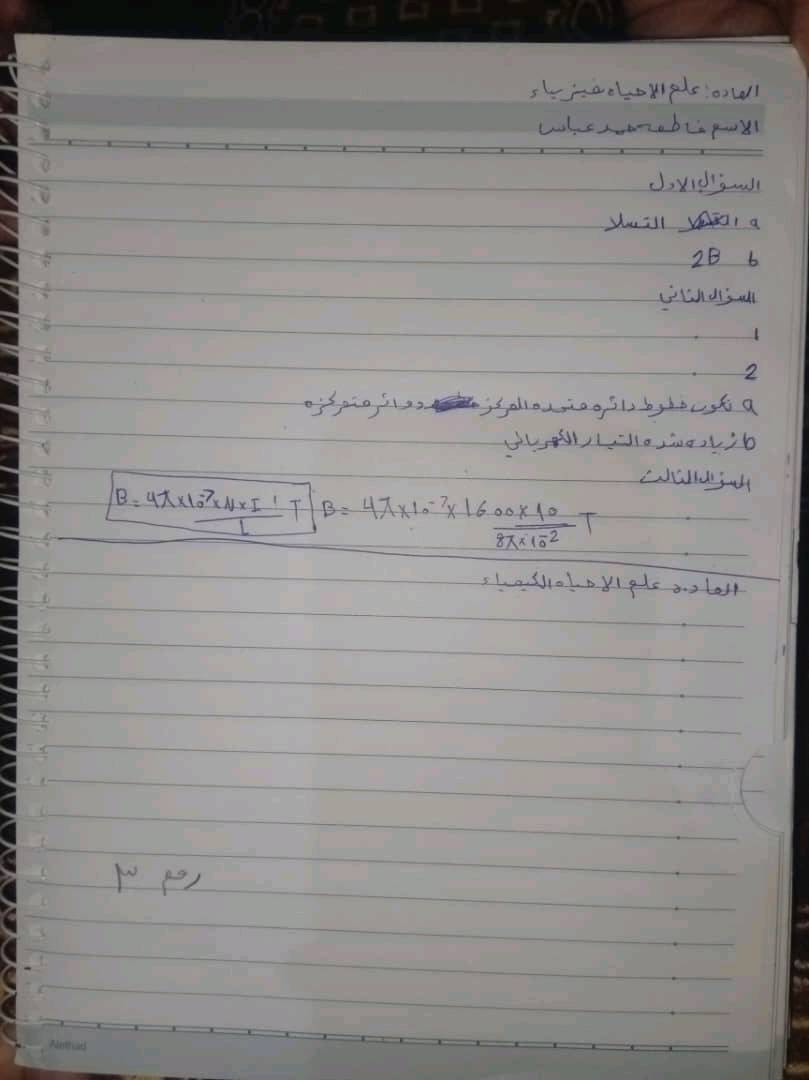 الماده: علم الاحياه فيزياء
الاسم فاطمه حمد عباس
السؤال الاول
a التسلا
b 2B
السؤال الثاني
1
2
a تكون خطوط دائره متحده المركز دوائر متمركزه
b زياده شده التيار الكهربائي
السؤال الثالث
B = 4π×10⁻⁷×1600×10 / 8π×10⁻² T
B = 4π×10⁻⁷×N×I / L T
الماده علم الاحياه الكيمياء
رقم ٣
Alethad